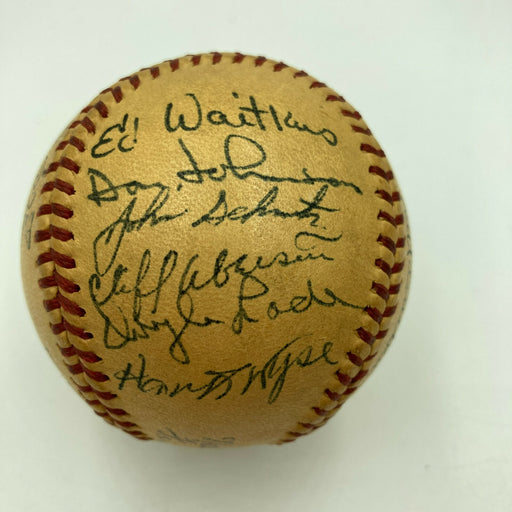 Ed Waitkus
Don Johnson
John Schmitz
Cliff Aberson
Doyle Lade
Hank Wyse